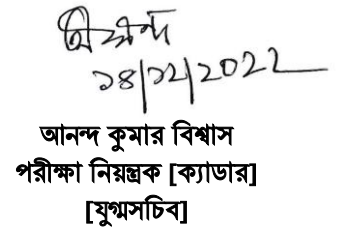 আনন্দ
১৪/১২/২০২২
আনন্দ কুমার বিশ্বাস
পরীক্ষা নিয়ন্ত্রক [ক্যাডার]
[যুগ্মসচিব]